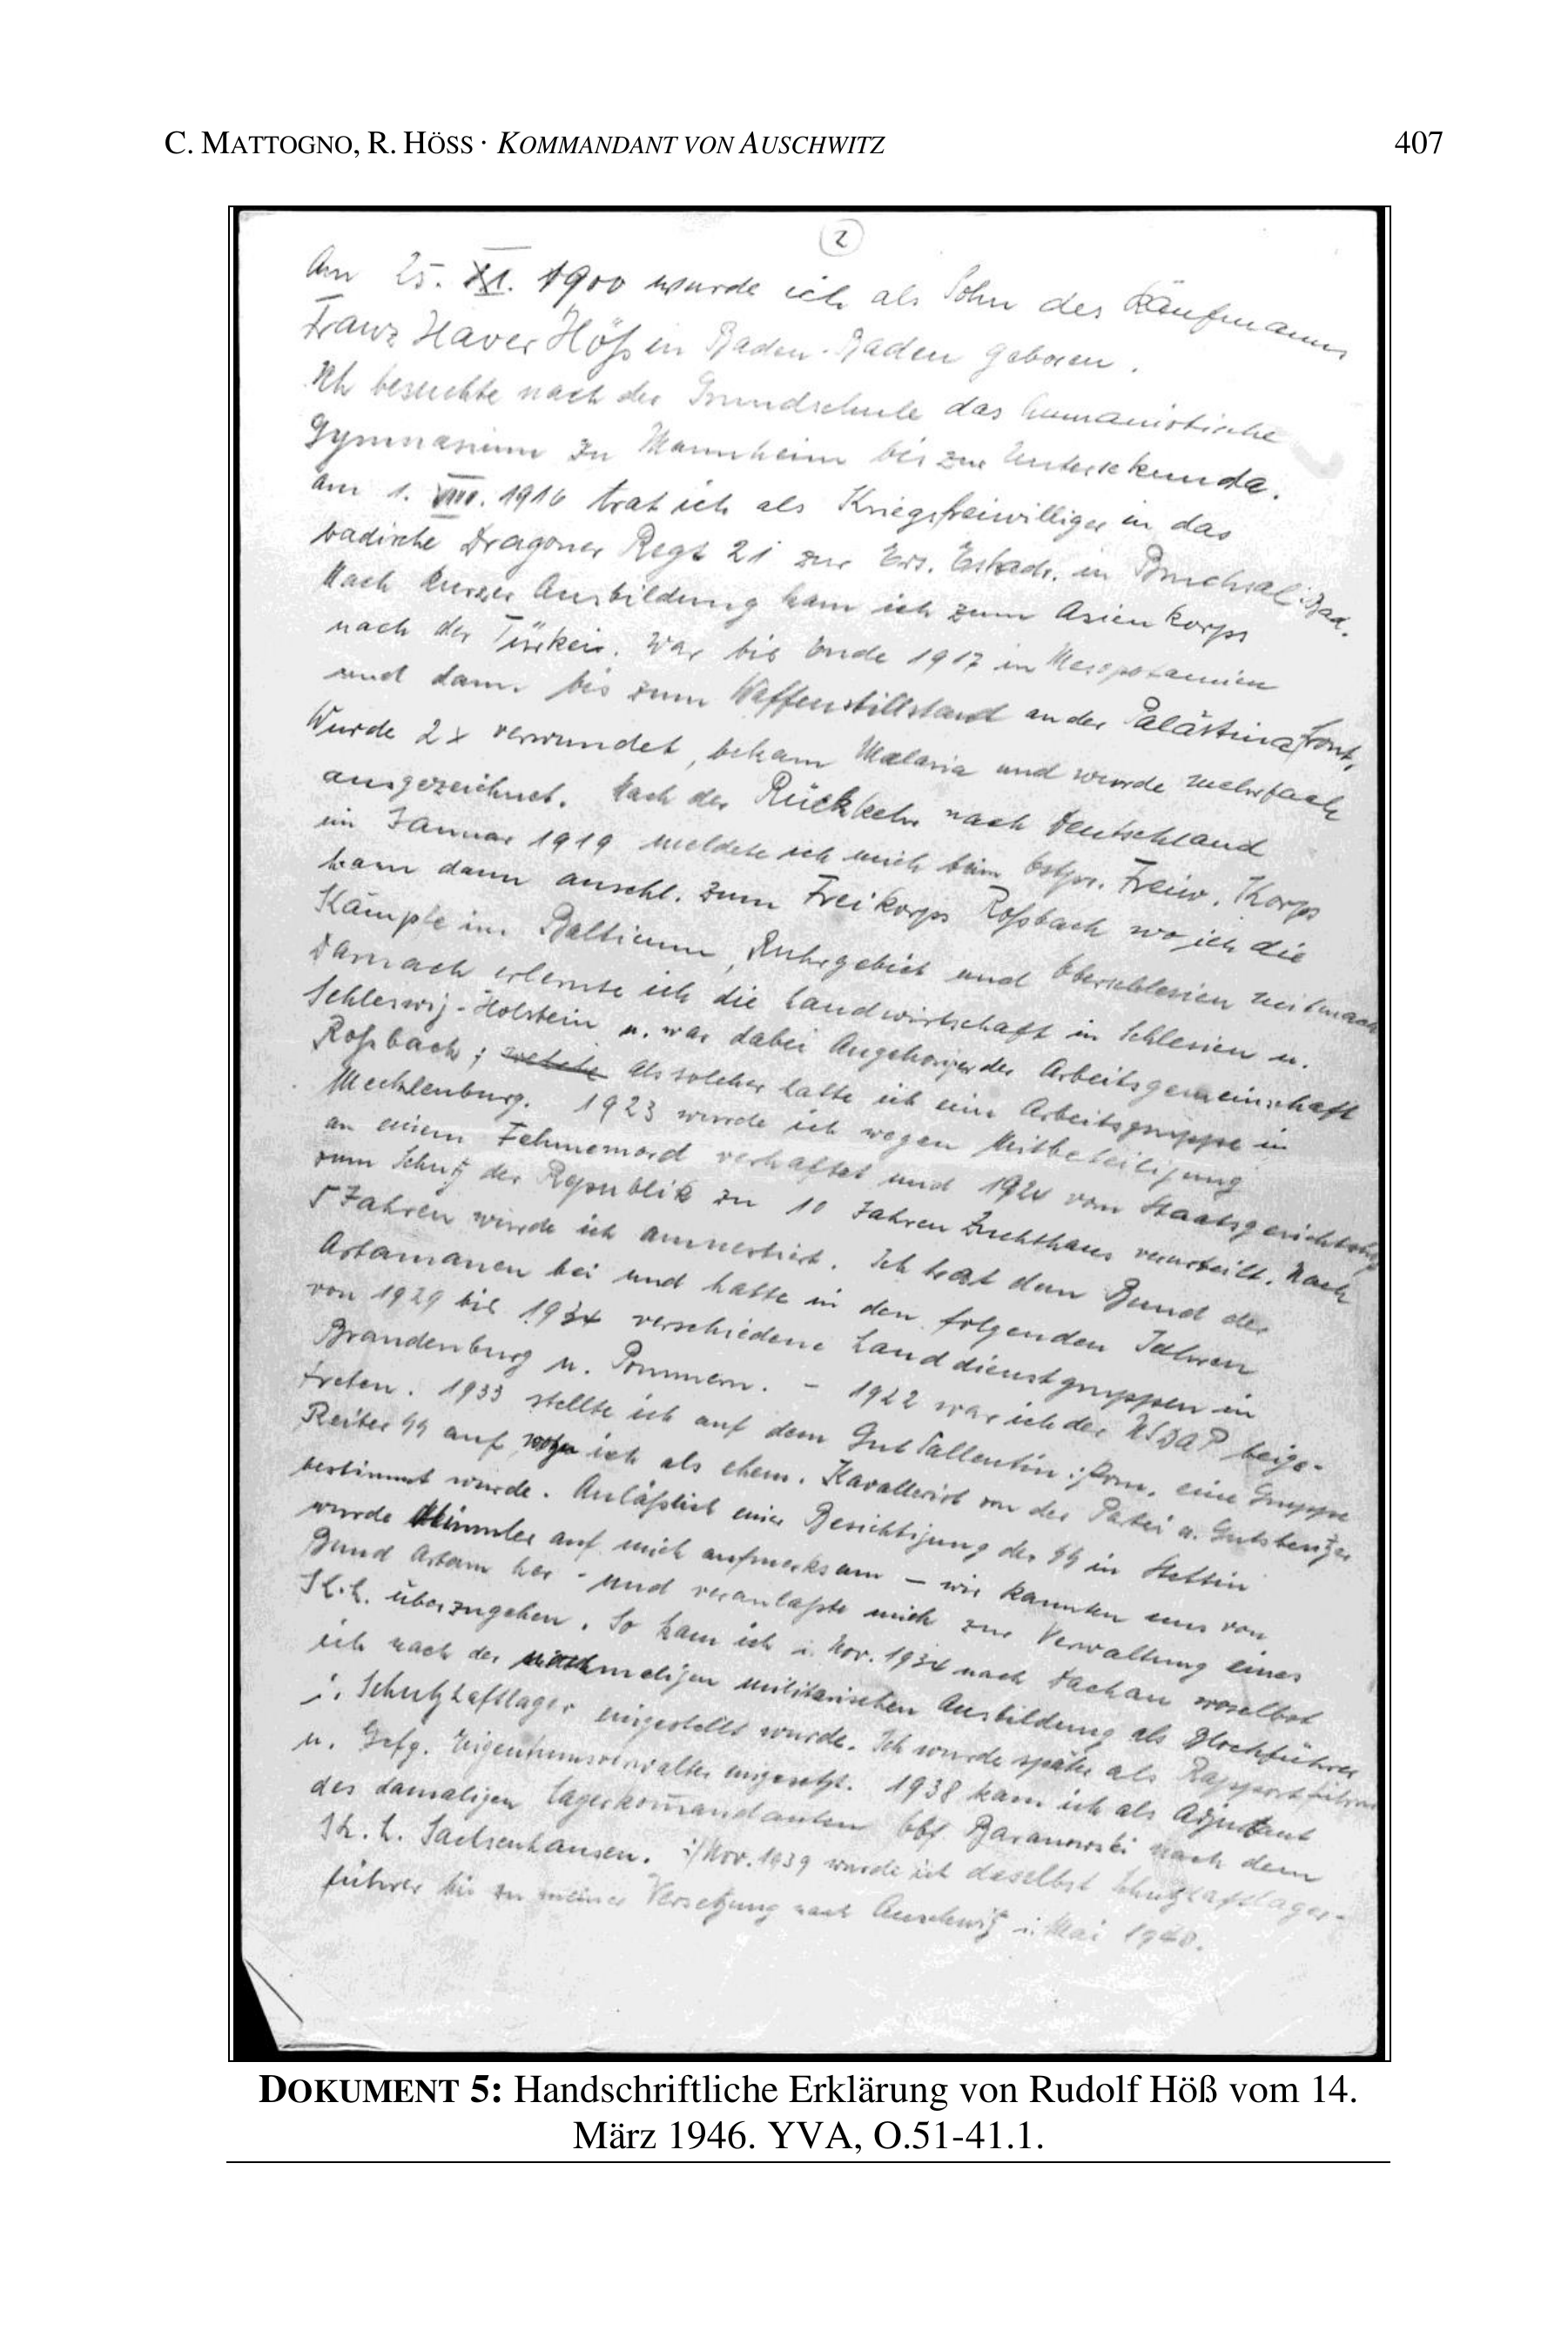 C. MATTOGNO, R. HÖSS · KOMMANDANT VON AUSCHWITZ 407
2
Am 25. XI. 1900 wurde ich als Sohn des Kaufmanns
Franz Xaver Höß in Baden-Baden geboren.
Ich besuchte nach der Grundschule das humanistische
Gymnasium zu Mannheim bis zur Untersekunda.
Am 1. VIII. 1916 trat ich als Kriegsfreiwilliger in das
badische Dragoner Regt 21 zur Ers. Eskadr. in Bruchsal i. Bad.
Nach kurzer Ausbildung kam ich zum Asienkorps
nach der Türkei. War bis Ende 1917 in Mesopotamien
und dann bis zum Waffenstillstand an der Palästinafront,
Wurde 2x verwundet, bekam Malaria und wurde mehrfach
ausgezeichnet. Nach der Rückkehr nach Deutschland
im Januar 1919 meldete ich mich beim Ostpr. Freiw. Korps
kam dann anschl. zum Freikorps Roßbach wo ich die
Kämpfe im Balticum, Ruhrgebiet und Oberschlesien mitmach
Darnach erlernte ich die Landwirtschaft in Schlesien u.
Schleswig-Holstein u. war dabei Angehöriger der Arbeitsgemeinschaft
Roßbach; welche als solcher hatte ich eine Arbeitsgruppe in
Mecklenburg. 1923 wurde ich wegen Mitbeteiligung
an einem Fehmemord verhaftet und 1924 vom Staatsgerichtshof
zum Schutz der Republik zu 10 Jahren Zuchthaus verurteilt. Nach
5 Jahren wurde ich amnestiert. Ich trat dem Bund der
Artamanen bei und hatte in den folgenden Jahren
von 1929 bis 1934 verschiedene Landdienstgruppen in
Brandenburg u. Pommern. – 1922 war ich der NSDAP beige-
treten. 1933 stellte ich auf dem Gut Sallentin i/Pom. eine Gruppe
Reiter SS auf, wozu ich als ehem. Kavallerist von der Partei u. Gutsbesitzer
bestimmt wurde. Anläßlich einer Besichtigung der SS in Stettin
wurde Himmler auf mich aufmerksam – wir kannten uns von
Bund Artam her - und veranlaßte mich zur Verwaltung eines
K.L. überzugehen. So kam ich i. Nov. 1934 nach Dachau woselbst
ich nach der nochmaligen militärischen Ausbildung als Blockführer
i. Schutzhaftlager eingestellt wurde. Ich wurde später als Rapportführer
u. Gefg. Eigentumsverwalter eingesetzt. 1938 kam ich als Adjutant
des damaligen Lagerkommandanten Obf Baranowski nach dem
K.L. Sachsenhausen. i/Nov. 1939 wurde ich daselbst Schutzhaftlager-
führer bis zu meiner Versetzung nach Auschwitz i. Mai 1940.
DOKUMENT 5: Handschriftliche Erklärung von Rudolf Höß vom 14.
März 1946. YVA, O.51-41.1.